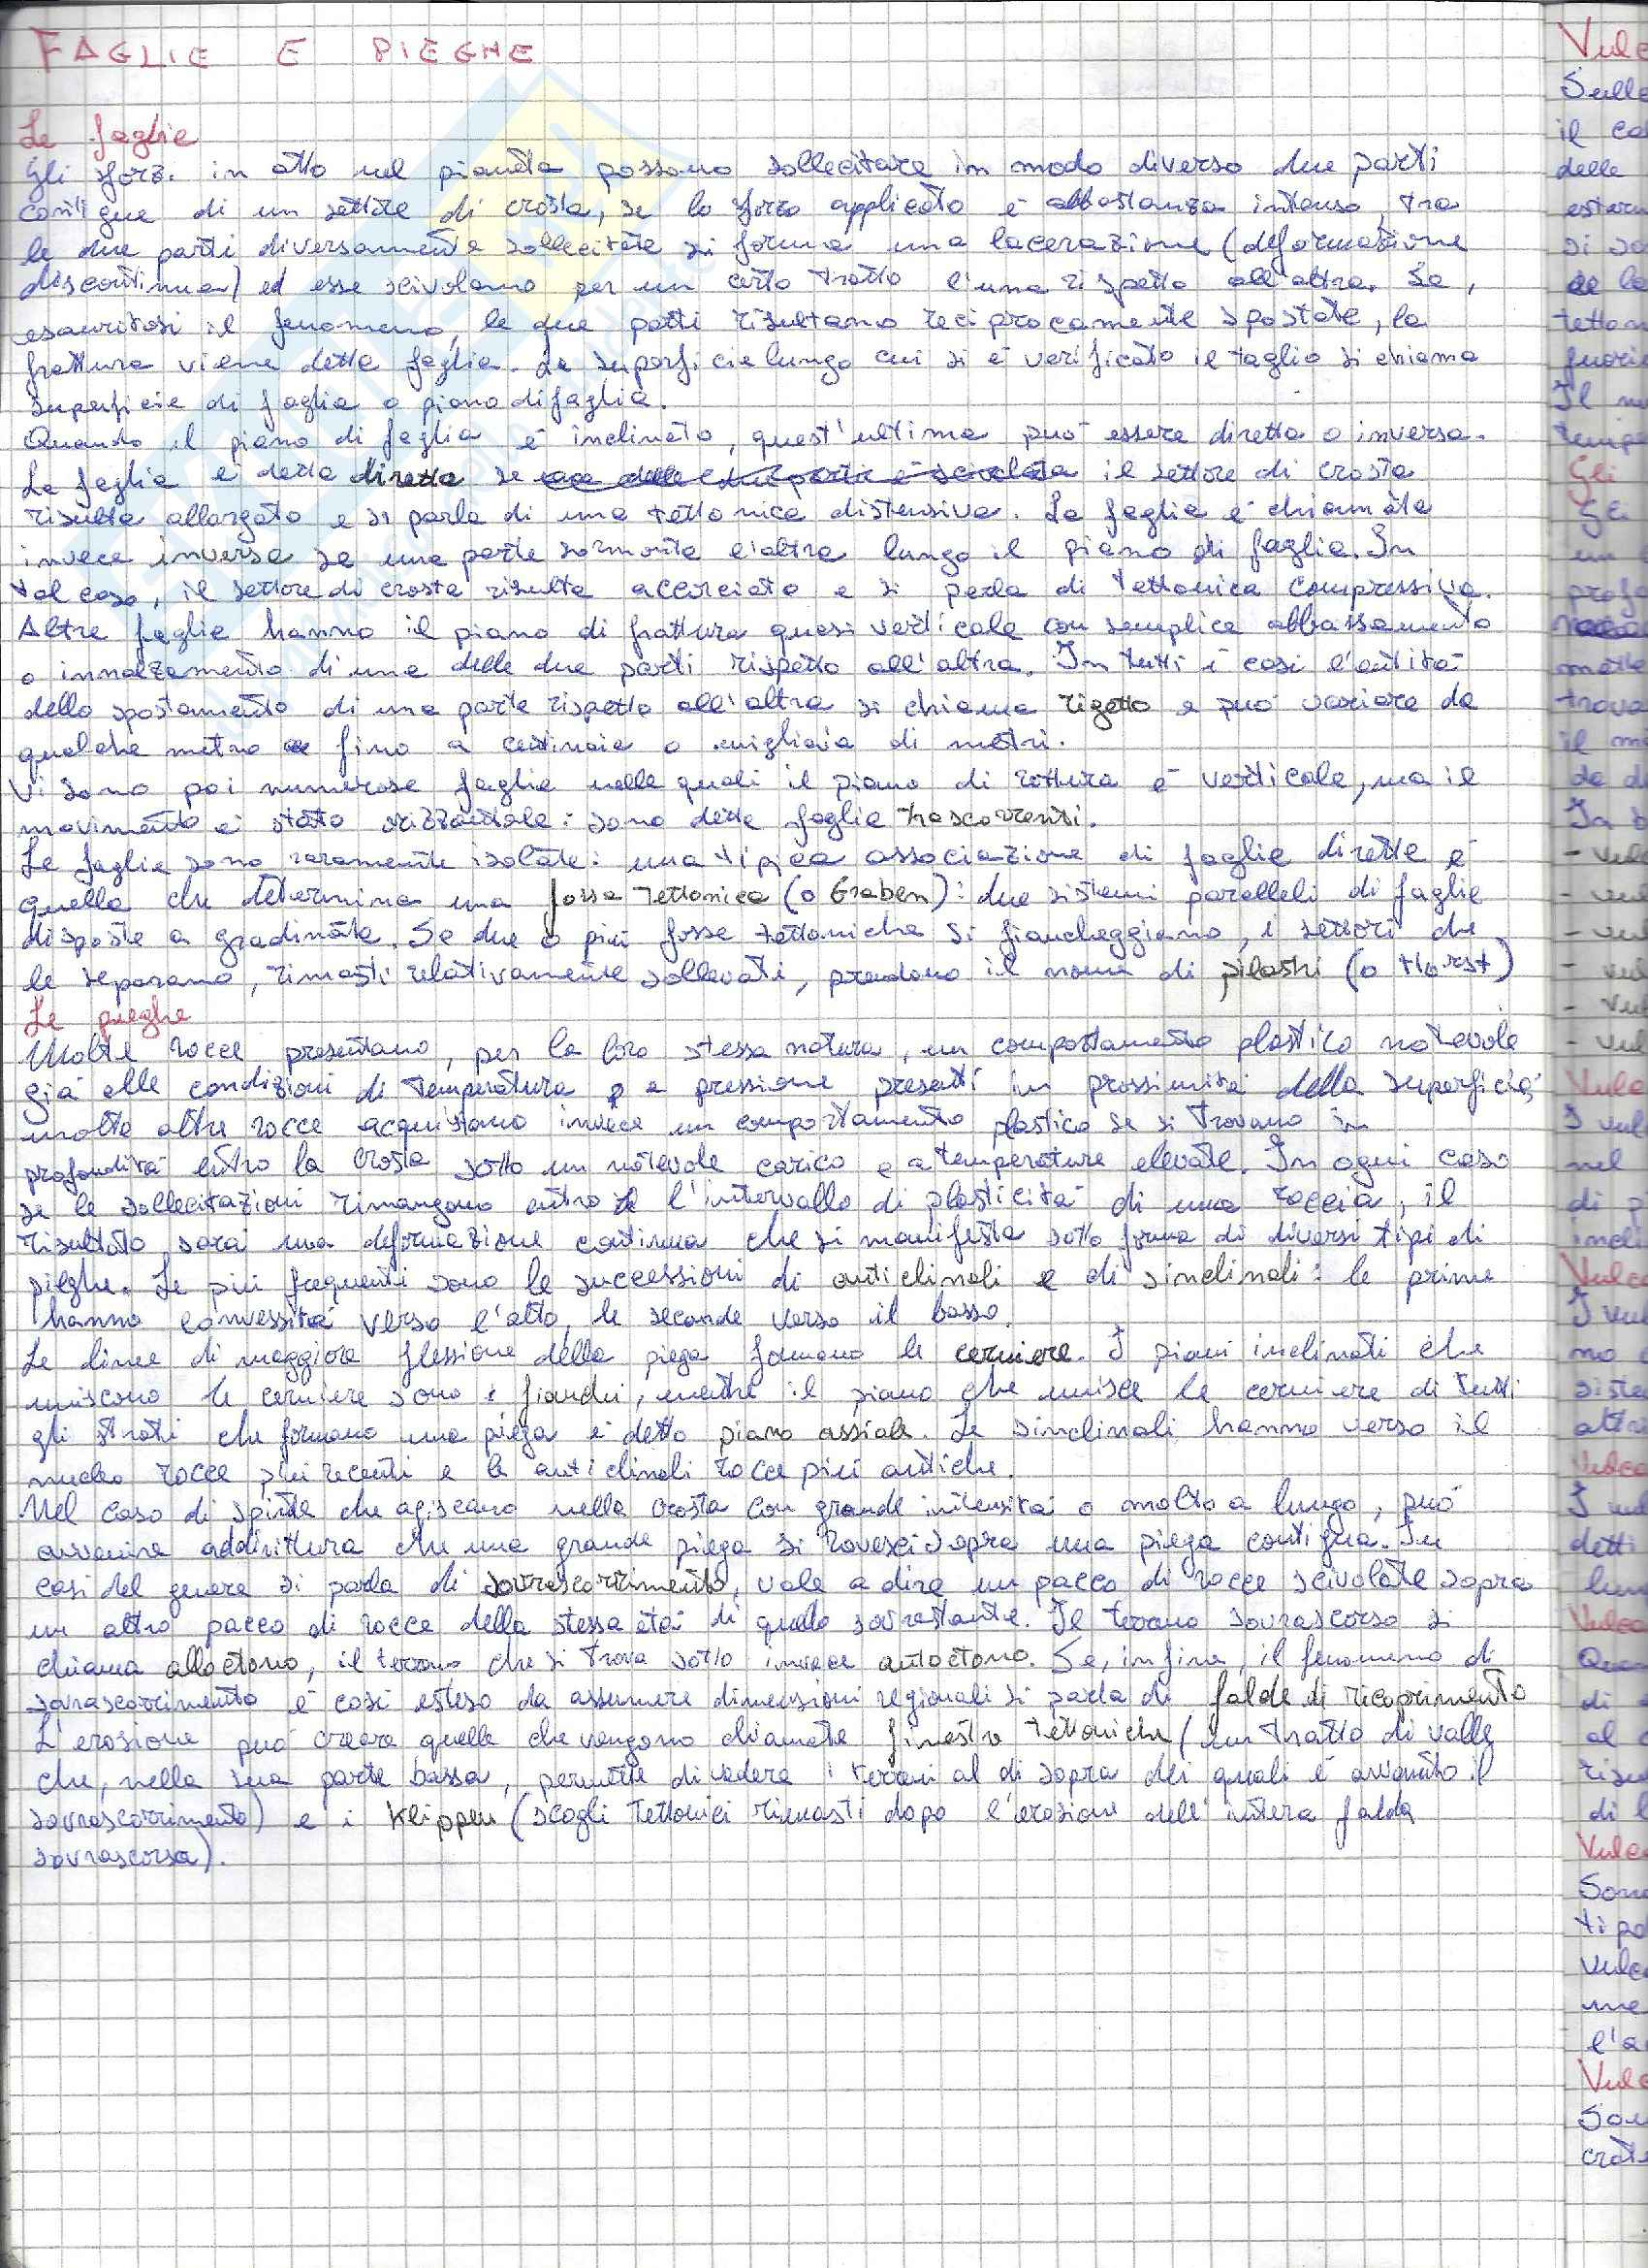 FAGLIE E PIEGHE
Le faglie
Gli sforzi in atto nel pianeta possono sollecitare in modo diverso due parti
contigue di un settore di crosta, se la forza applicata è abbastanza intensa, tra
le due parti diversamente sollecitate si forma una lacerazione (deformazione
discontinua) ed esse scivolano per un certo tratto l'una rispetto all'altra. Se,
esauritosi il fenomeno, le due parti risultano reciprocamente spostate, la
frattura viene detta faglia. La superficie lungo cui si è verificato il taglio si chiama
superficie di faglia o piano di faglia.
Quando il piano di faglia è inclinato, quest'ultima può essere diretta o inversa.
La faglia è detta diretta se il settore di crosta
risulta allargato e si parla di una tettonica distensiva. La faglia è chiamata
invece inversa se una parte sormonta l'altra lungo il piano di faglia. In
tal caso, il settore di crosta risulta accorciato e si parla di tettonica compressiva.
Altre faglie hanno il piano di frattura quasi verticale con semplice abbassamento
o innalzamento di una delle due parti rispetto all'altra. In tutti i casi l'entità
dello spostamento di una parte rispetto all'altra si chiama rigetto e può variare da
qualche metro fino a centinaia o migliaia di metri.
Vi sono poi numerose faglie nelle quali il piano di rottura è verticale, ma il
movimento è stato orizzontale: sono dette faglie trascorrenti.
Le faglie sono raramente isolate: una tipica associazione di faglie dirette è
quella che determina una fossa tettonica (o Graben): due sistemi paralleli di faglie
disposte a gradinate. Se due o più fosse tettoniche si fiancheggiano, i settori che
le separano, rimasti relativamente sollevati, prendono il nome di pilastri (o Horst)
Le pieghe
Molte rocce presentano, per la loro stessa natura, un comportamento plastico notevole
già alle condizioni di temperatura e a pressione presenti in prossimità della superficie;
molte altre rocce acquistano invece un comportamento plastico se si trovano in
profondità entro la crosta sotto un notevole carico e a temperature elevate. In ogni caso
se le sollecitazioni rimangono entro l'intervallo di plasticità di una roccia, il
risultato sarà una deformazione continua che si manifesta sotto forma di diversi tipi di
pieghe. Le più frequenti sono le successioni di anticlinali e di sinclinali: le prime
hanno convessità verso l'alto, le seconde verso il basso.
Le linee di maggiore flessione della piega formano le cerniere. I piani inclinati che
uniscono le cerniere sono i fianchi, mentre il piano che unisce le cerniere di tutti
gli strati che formano una piega è detto piano assiale. Le sinclinali hanno verso il
nucleo rocce più recenti e le anticlinali rocce più antiche.
Nel caso di spinte che agiscano nella crosta con grande intensità o molto a lungo, può
avvenire addirittura che una grande piega si rovesci sopra una piega contigua. In
casi del genere si parla di sovrascorrimento, vale a dire un pacco di rocce scivolate sopra
un altro pacco di rocce della stessa età di quello sovrastante. Il terreno sovrascorso si
chiama alloctono, il terreno che si trova sotto invece autoctono. Se, infine, il fenomeno di
sovrascorrimento è così esteso da assumere dimensioni regionali si parla di falde di ricoprimento
L'erosione può creare quelle che vengono chiamate finestre tettoniche (un tratto di valle
che, nella sua parte bassa, permette di vedere i terreni al di sopra dei quali è avvenuto il
sovrascorrimento) e i Klippen (scogli tettonici rimasti dopo l'erosione dell'intera falda
sovrascorsa).